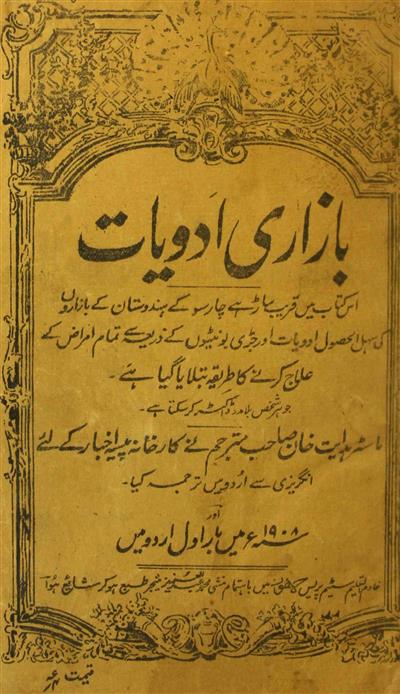 بازاری ادویات
اس کتاب میں قریب ساڑھے چار سو کے ہندوستان کے بازاروں
کی سہل الحصول ادویات اور جڑی بوٹیوں کے ذریعے تمام امراض کے
علاج کرنے کا طریقہ بتلایا گیا ہے۔
جو ہر شخص بلا مدد ڈاکٹر کر سکتا ہے۔
ماسٹر ہدایت خان صاحب مترجم نے کارخانہ پیسہ اخبار کے لئے
انگریزی سے اردو میں ترجمہ کیا۔
اور
سنہ ۱۹۰۸ء میں بار اول اردو میں
خادم التعلیم سٹیم پریس میں باہتمام منشی محمد عبدالعزیز منیجر طبع ہو کر شائع ہوا
قیمت